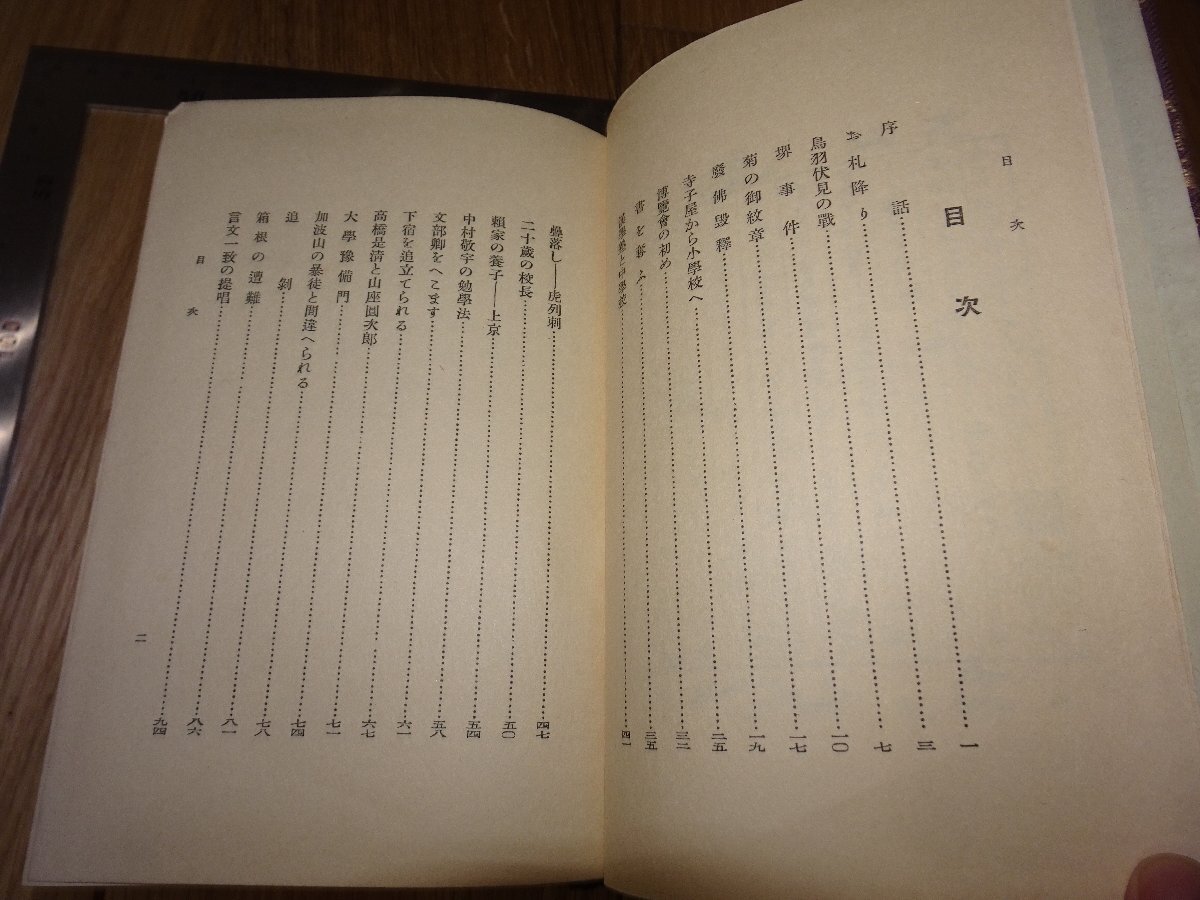 目次
目次
序話……一
お札降り……三
鳥羽伏見の戰……七
堺事件……一〇
菊の御紋章……一七
廢佛毀釋……一九
寺子屋から小學校へ……二五
博覽會の初め……三二
書を奪ふ……三五
と中學校……四一
落し——虎列刺……四七
二十歳の校長……五〇
賴家の養子——上京……五四
中村敬宇の勉學法……五八
文部卿をへこます……六一
下宿を追立てられる……六七
高橋是清と山座圓次郎……七一
大學豫備門……七四
加波山の暴徒と間違へられる……七八
追剝……八一
箱根の遭難……八六
言文一致の提唱……九四
目次
二